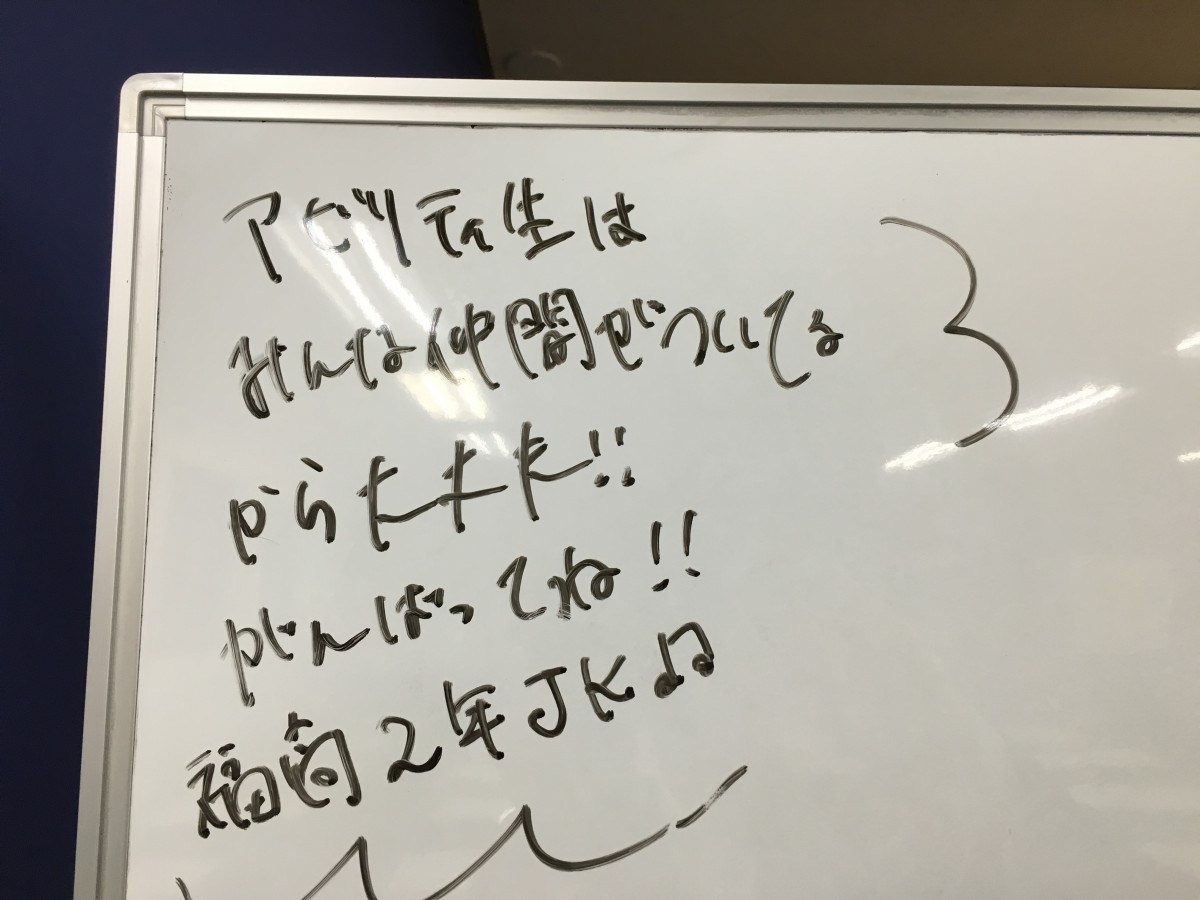 アビリティ生は
みんな仲間がついてる
から大丈夫!!
がんばってね!!
福岡2年JK♫